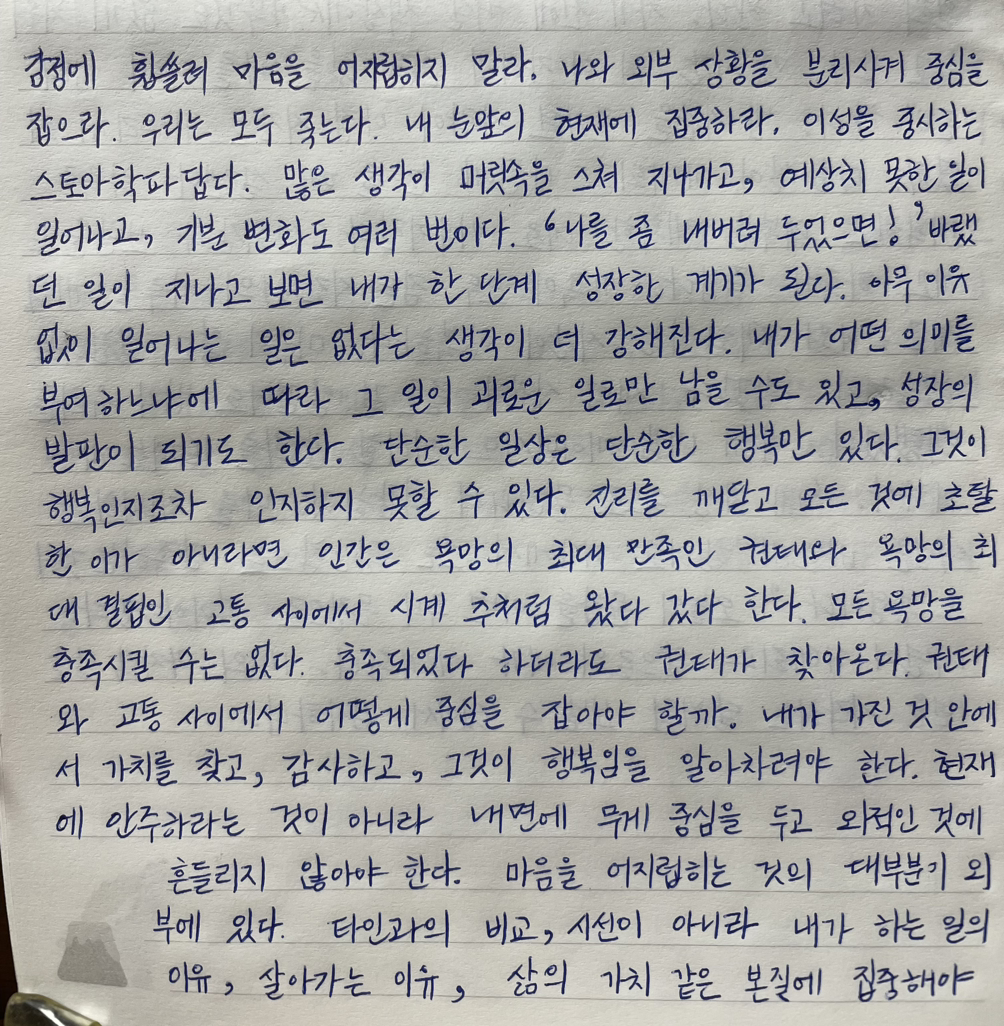 감정에 휩쓸려 마음을 어지럽히지 말라. 나와 외부 상황을 분리시켜 중심을
잡으라. 우리는 모두 죽는다. 내 눈앞의 현재에 집중하라. 이성을 중시하는
스토아학파답다. 많은 생각이 머릿속을 스쳐 지나가고, 예상치 못한 일이
일어나고, 기분 변화도 여러 번이다. '나를 좀 내버려 두었으면!' 바랬
던 일이 지나고 보면 내가 한 단계 성장한 계기가 된다. 아무 이유
없이 일어나는 일은 없다는 생각이 더 강해진다. 내가 어떤 의미를
부여하느냐에 따라 그 일이 괴로운 일로만 남을 수도 있고, 성장의
발판이 되기도 한다. 단순한 일상은 단순한 행복만 있다. 그것이
행복인지조차 인지하지 못할 수 있다. 진리를 깨닫고 모든 것에 초탈
한 이가 아니라면 인간은 욕망의 최대 만족인 권태와 욕망의 최
대 결핍인 고통 사이에서 시계 추처럼 왔다 갔다 한다. 모든 욕망을
충족시킬 수는 없다. 충족되었다 하더라도 권태가 찾아온다. 권태
와 고통 사이에서 어떻게 중심을 잡아야 할까. 내가 가진 것 안에
서 가치를 찾고, 감사하고, 그것이 행복임을 알아차려야 한다. 현재
에 안주하라는 것이 아니라 내면에 무게 중심을 두고 외적인 것에
흔들리지 않아야 한다. 마음을 어지럽히는 것의 대부분기 외
부에 있다. 타인과의 비교, 시선이 아니라 내가 하는 일의
이유, 살아가는 이유, 삶의 가치 같은 본질에 집중해야